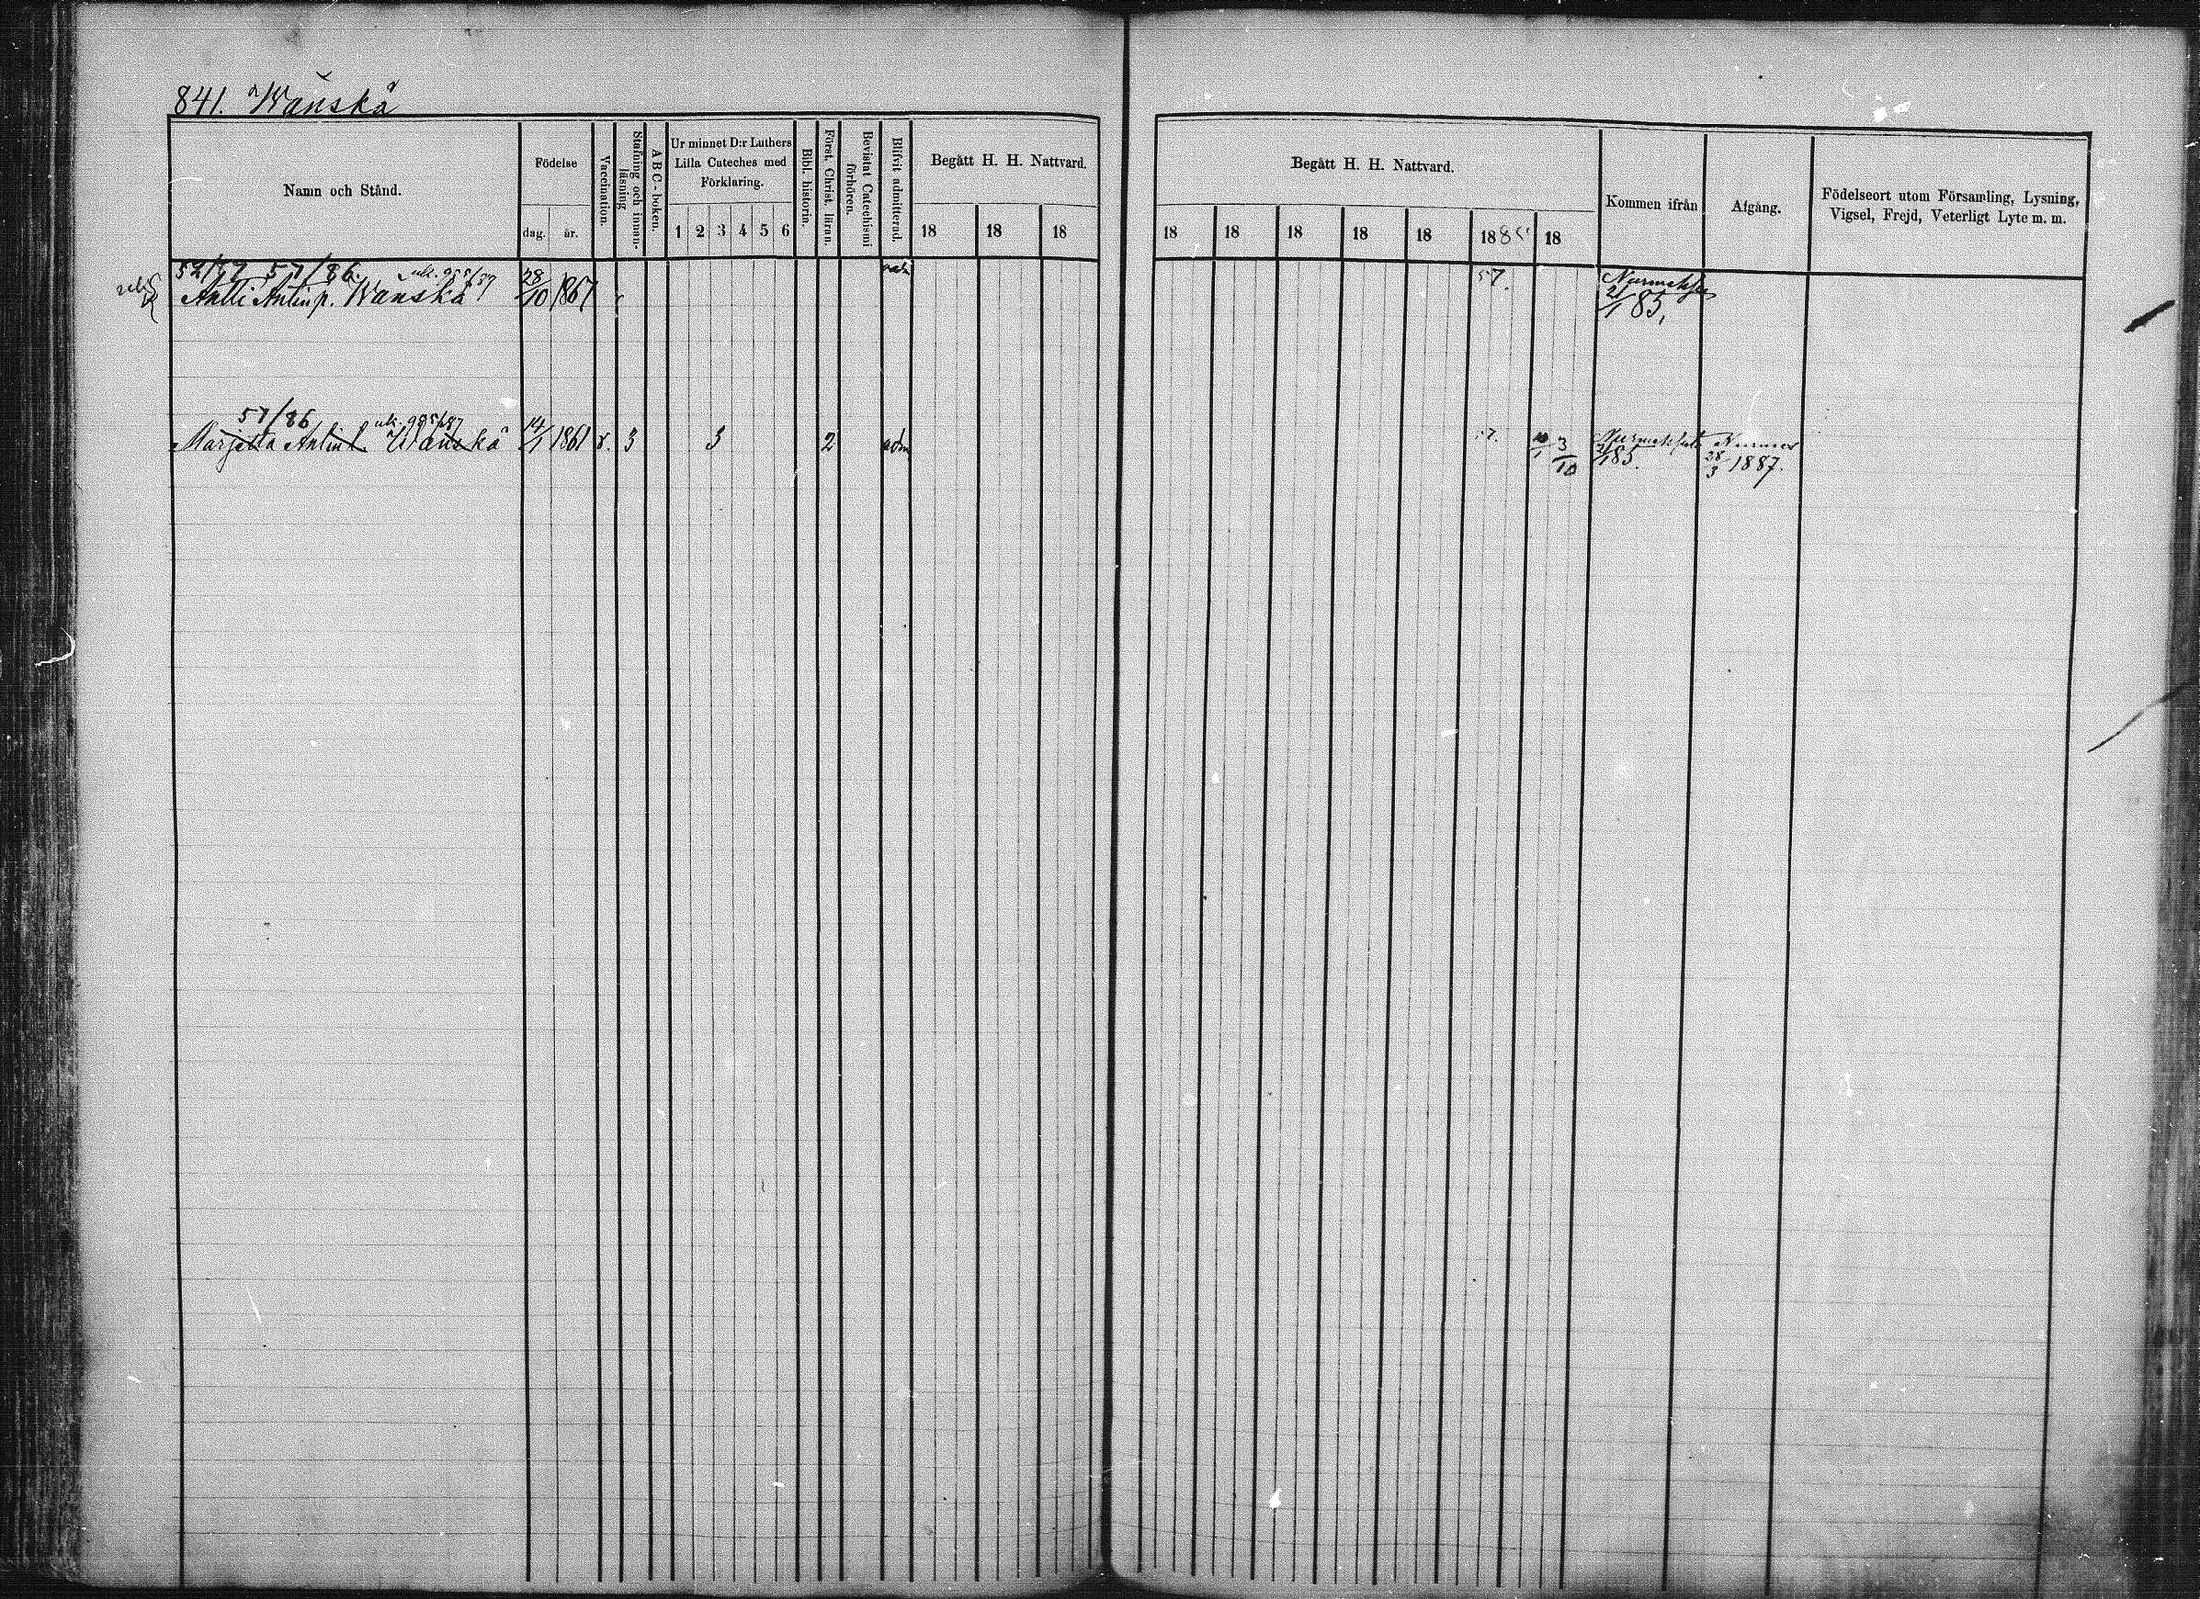 841. Wänskä
Namn och Stånd.
Födelse
dag.
år.
Vaccination.
Stafning och innan-
läsning
ABC-boken.
Ur minnet D:r Luthers
Lilla Cateches med
Förklaring.
1 2 3 4 5 6
Bibl. historia.
Först. Christ. läran.
Bevistat Catechismi
förhören.
Blifvit admitterad.
Begått H. H. Nattvard.
18 18 18
Begått H. H. Nattvard.
18 18 18 18 18 1885 18
Kommen ifrån
Afgång.
Födelseort utom Församling, Lysning,
Vigsel, Frejd, Veterligt Lyte m. m.
57/86.
Antti Antinp. Wänskä 28/10 1867 57.
2/1 85,
57/86
Marjetta Antint. Wänskä 14/1 1861 v. 3 3 2 adm 57. 3/10
2/1 85. 28/3 1887.